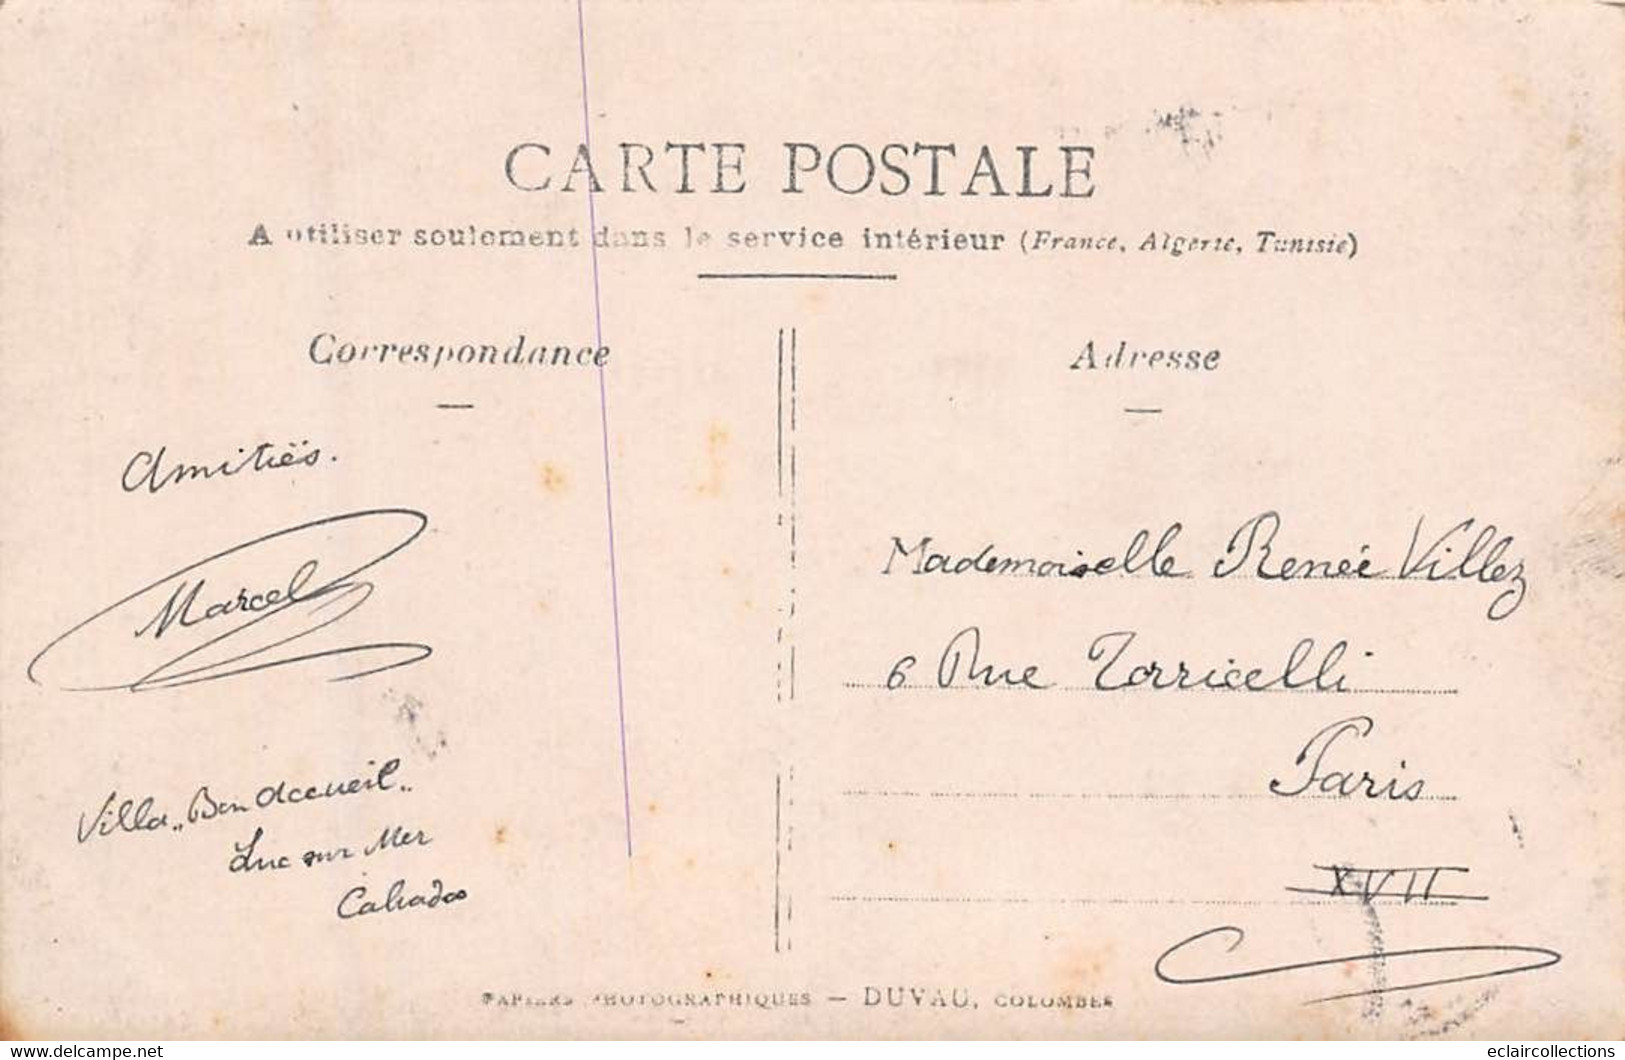 CARTE POSTALE
A utiliser seulement dans le service intérieur (France, Algerie, Tunisie)
Correspondance
Adresse
Amitiés.
Marcel
Mademoiselle Renée Villez
6 Rue Torricelli
Paris
XVII
Villa „Bon Accueil„
Luc sur Mer
Calvados
PAPIERS PHOTOGRAPHIQUES — DUVAU, COLOMBES
delcampe.net
eclaircollections